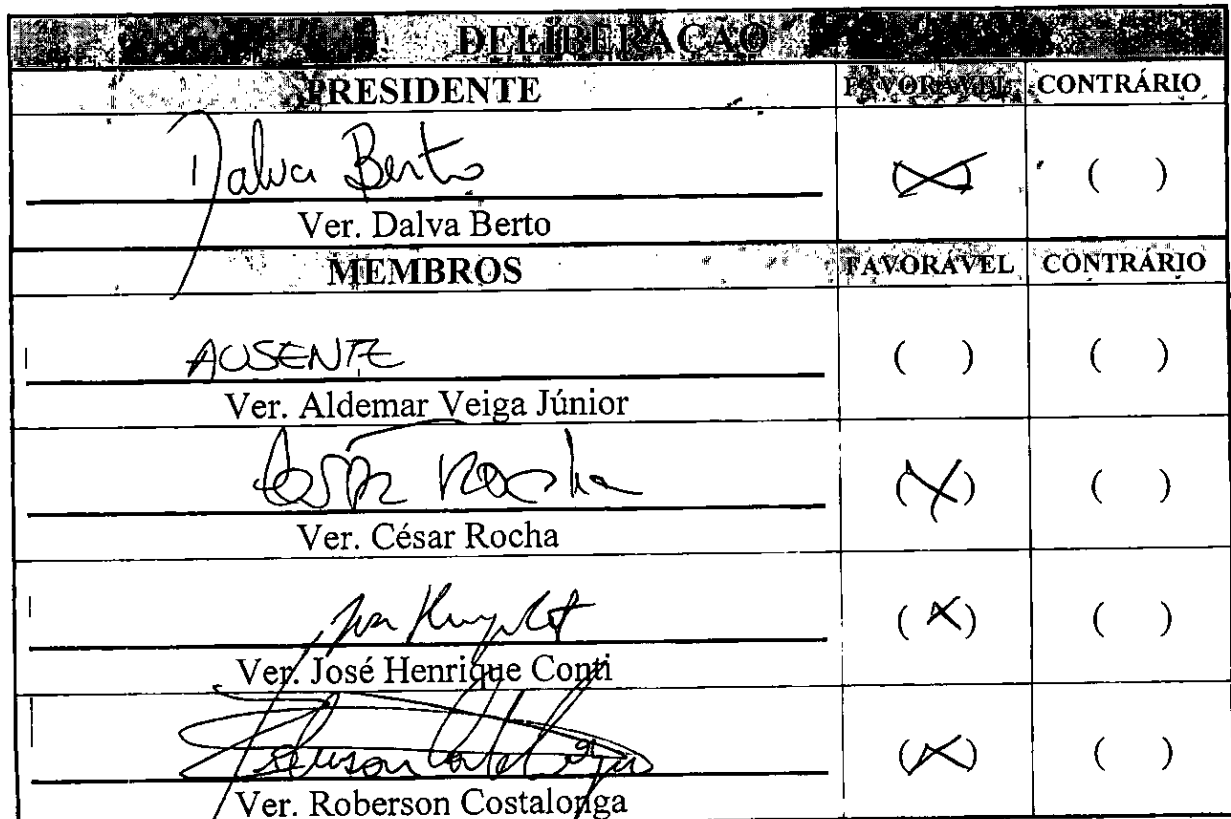 DELIBERAÇÃO
PRESIDENTE FAVORÁVEL CONTRÁRIO
Dalva Berto (X) ( )
Ver. Dalva Berto
MEMBROS FAVORÁVEL CONTRÁRIO
AUSENTE ( ) ( )
Ver. Aldemar Veiga Júnior
César Rocha (X) ( )
Ver. César Rocha
(X) ( )
Ver. José Henrique Conti
(X) ( )
Ver. Roberson Costalonga